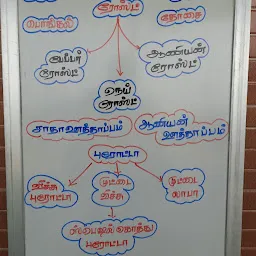 ரோஸ்ட்
பொங்கல்
தோசை
பேப்பர்
ரோஸ்ட்
ஆனியன்
ரோஸ்ட்
நெய்
ரோஸ்ட்
சாதா ஊத்தாப்பம்
ஆனியன்
ஊத்தாப்பம்
புரோட்டா
வீச்சு
புரோட்டா
முட்டை
வீச்சு
முட்டை
லாபா
ஸ்பெஷல் கொத்து
புரோட்டா